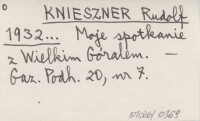 KNIESZNER Rudolf
1932... Moje spotkanie
z Wielkim Góralem. —
Gaz. Podh. 20, nr 7.